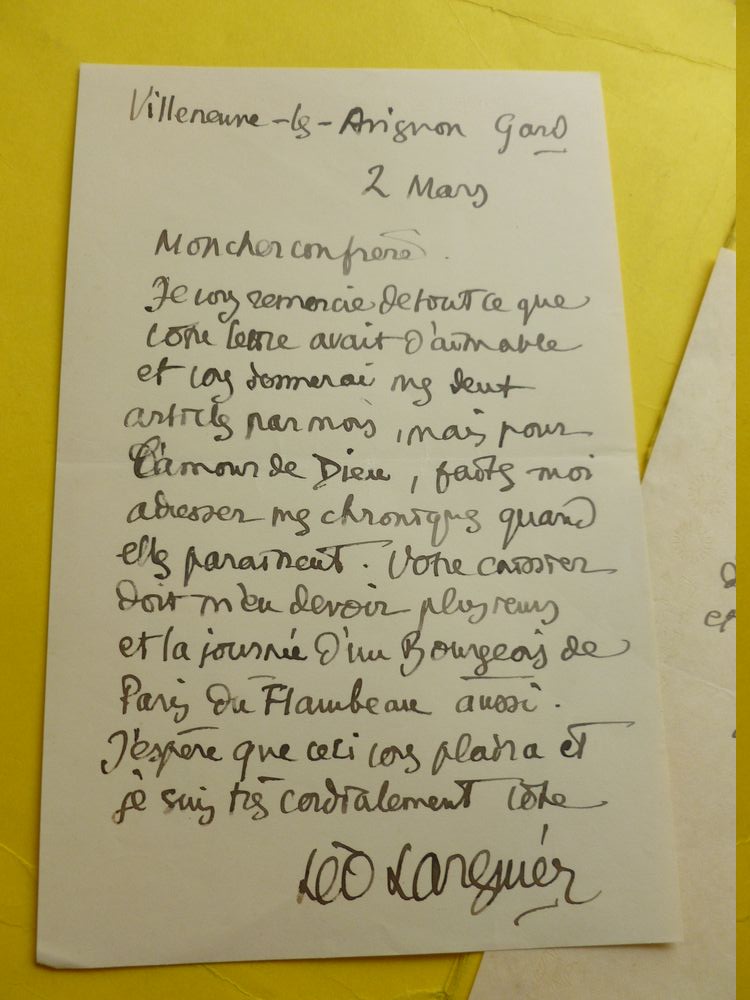 Villeneuve-lès-Avignon Gard
2 Mars
Mon cher confrère.
Je vous remercie de tout ce que
votre lettre avait d'aimable
et vous donnerai mes deux
articles par mois, mais pour
l'amour de Dieu, faites moi
adresser mes chroniques quand
elles paraissent. Votre caissier
doit m'en devoir plusieurs
et la journée d'un Bourgeois de
Paris du Flambeau aussi.
J'espère que ceci vous plaira et
je suis très cordialement vôtre
Léo Larguier
et